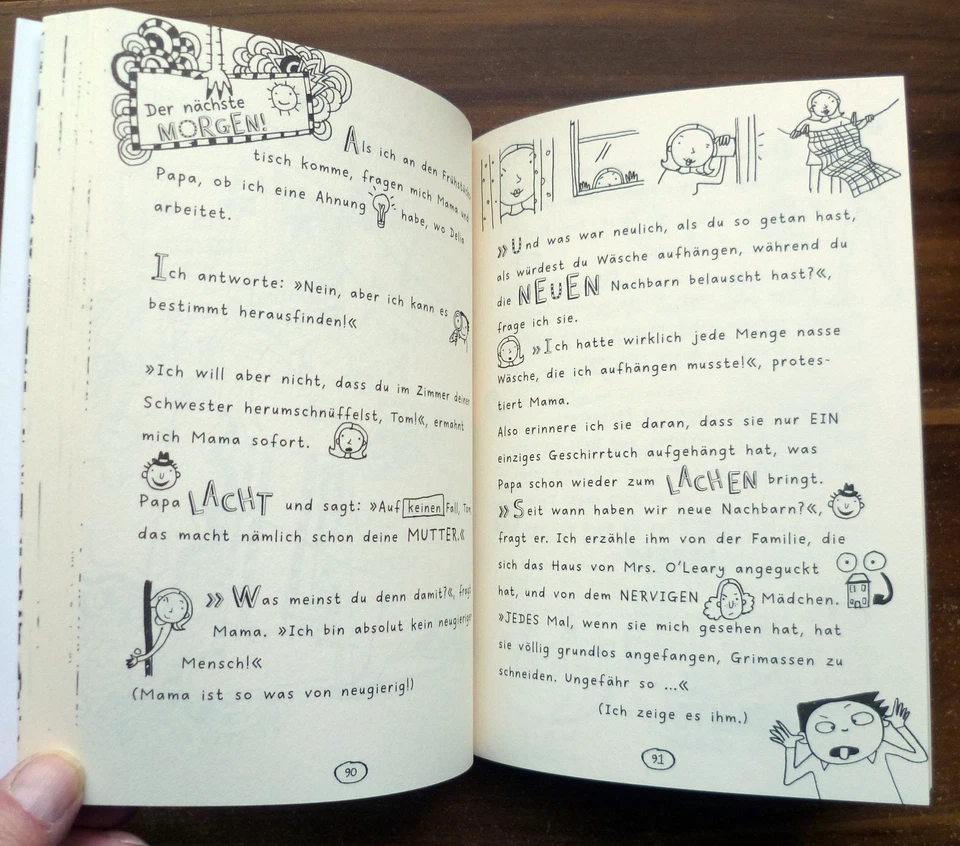 Der nächste
MORGEN!
Als ich an den Frühstücks
tisch komme, fragen mich Mama und
Papa, ob ich eine Ahnung habe, wo Delia
arbeitet.
Ich antworte: »Nein, aber ich kann es
bestimmt herausfinden!«
»Ich will aber nicht, dass du im Zimmer deiner
Schwester herumschnüffelst, Tom!«, ermahnt
mich Mama sofort.
Papa LACHT und sagt: »Auf keinen Fall, Tom
das macht nämlich schon deine MUTTER.«
»Was meinst du denn damit?«, fragt
Mama. »Ich bin absolut kein neugieriger
Mensch!«
(Mama ist so was von neugierig!)
90
»Und was war neulich, als du so getan hast,
als würdest du Wäsche aufhängen, während du
die NEUEN Nachbarn belauscht hast?«,
frage ich sie.
»Ich hatte wirklich jede Menge nasse
Wäsche, die ich aufhängen musste!«, protes-
tiert Mama.
Also erinnere ich sie daran, dass sie nur EIN
einziges Geschirrtuch aufgehängt hat, was
Papa schon wieder zum LACHEN bringt.
»Seit wann haben wir neue Nachbarn?«,
fragt er. Ich erzähle ihm von der Familie, die
sich das Haus von Mrs. O'Leary angeguckt
hat, und von dem NERVIGEN Mädchen.
»JEDES Mal, wenn sie mich gesehen hat, hat
sie völlig grundlos angefangen, Grimassen zu
schneiden. Ungefähr so ...«
(Ich zeige es ihm.)
91